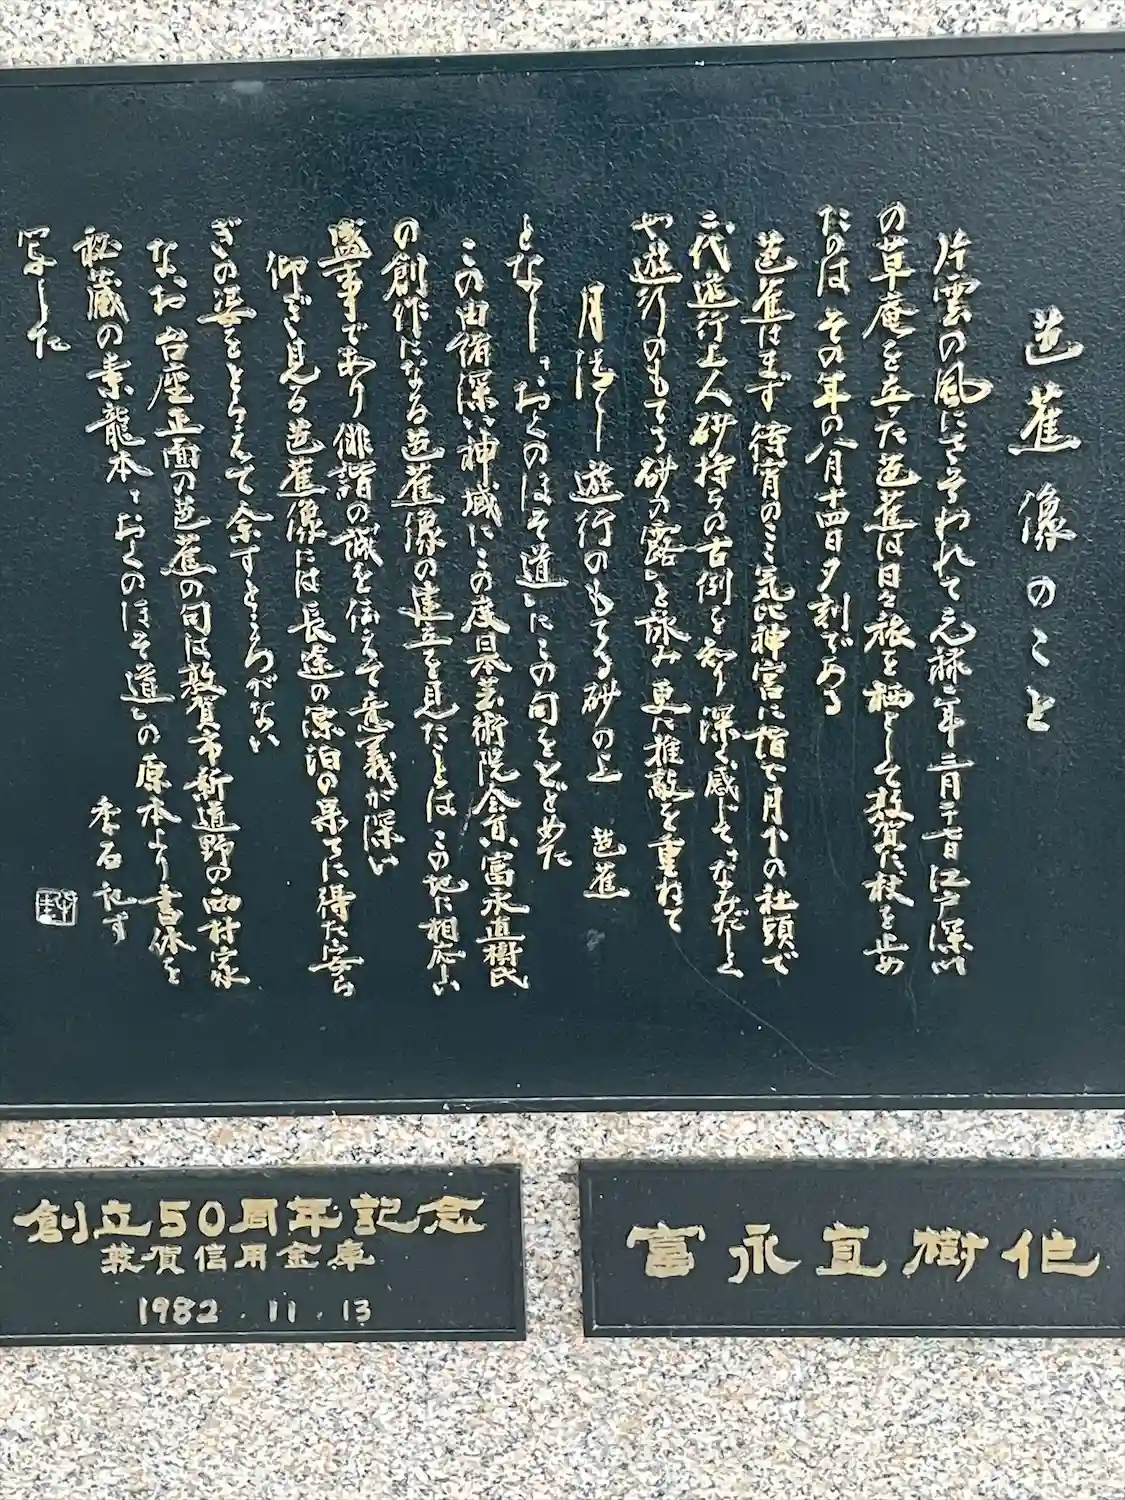 芭蕉像のこと
片雲の風にさそわれて元禄二年三月二十七日江戸深川
の草庵を立った芭蕉は日々旅を栖として敦賀に杖を止め
たのは その年の八月十四日夕刻である
芭蕉はまず 待宵のこと気比神宮に詣で月下の社頭で
二代遊行上人砂持ちの古例を知り深く感じて
や遊行のもてる砂の露」と詠み 更に推敲を重ねて
月清し 遊行のもてる砂の上 芭蕉
となし「おくのほそ道」にこの句をとどめた
この由緒深い神域にこの度日本芸術院会員富永直樹氏
の創作になる芭蕉像の建立を見たことは この地に相応しい
盛事であり俳諧の誠を伝えて意義が深い
仰ぎ見る芭蕉像には長途の漂泊の果てに得た安ら
ぎの姿をとらえて余すところがない
なお 台座正面の芭蕉の句は敦賀市新道野の西村家
秘蔵の素龍本「おくのほそ道」の原本より書体を
写した
季石記す
創立50周年記念
敦賀信用金庫
1982.11.13
富永直樹作